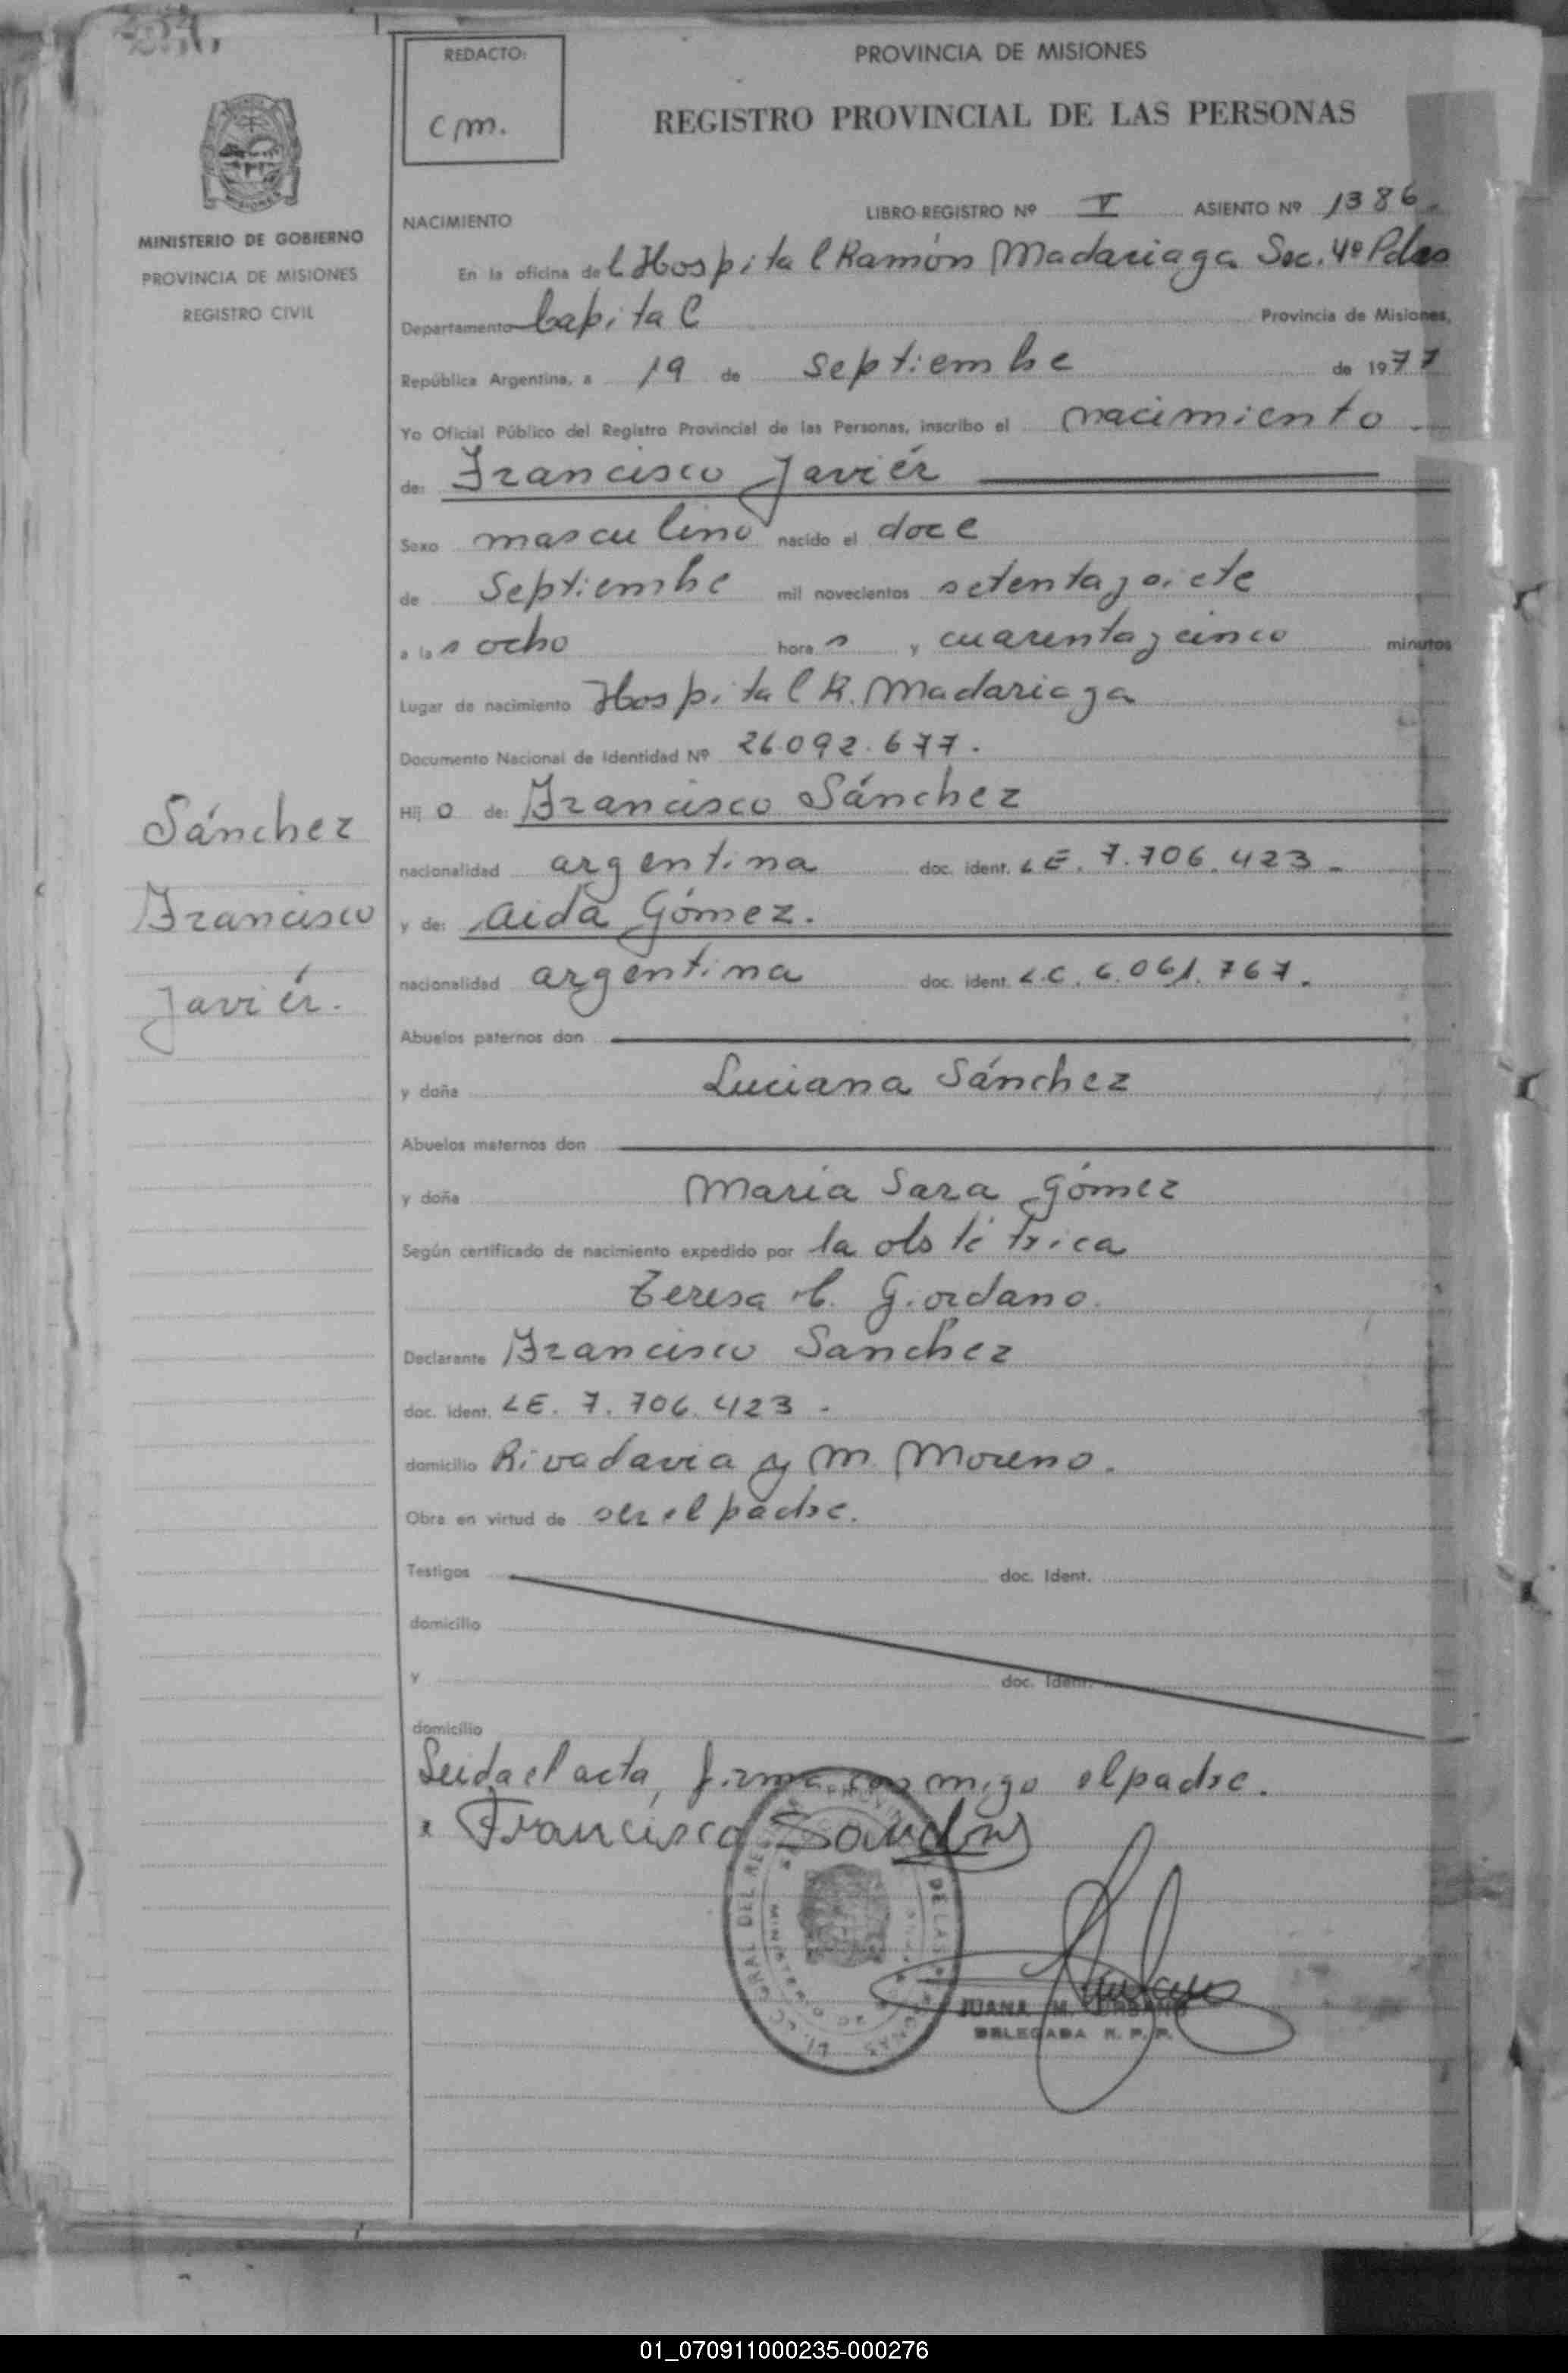 REDACTO:
cm.
PROVINCIA DE MISIONES
REGISTRO PROVINCIAL DE LAS PERSONAS
MINISTERIO DE GOBIERNO
PROVINCIA DE MISIONES
REGISTRO CIVIL
NACIMIENTO
LIBRO-REGISTRO Nº V ASIENTO Nº 1386.
En la oficina del Hospital Ramón Madariaga Sec. 4º Pdas
Departamento Capital Provincia de Misiones,
República Argentina, a 19 de Septiembre de 1977
Yo Oficial Público del Registro Provincial de las Personas, inscribo el nacimiento.
de: Francisco Javiér
Sexo masculino nacido el doce
de Septiembre mil novecientos setenta y siete
a las ocho horas y cuarenta y cinco minutos
Lugar de nacimiento Hospital R. Madariaga
Documento Nacional de Identidad Nº 26.092.677.
Hijo de: Francisco Sánchez
nacionalidad argentina doc. ident. LE. 7.706.423-
y de: Aida Gómez.
nacionalidad argentina doc. ident. L.C. 6.061.767.
Sánchez
Francisco
Javiér.
Abuelos paternos don
y doña Luciana Sánchez
Abuelos maternos don
y doña María Sara Gómez
Según certificado de nacimiento expedido por la obstétrica
Teresa C. Giordano.
Declarante Francisco Sanchez
doc. ident. LE. 7.706.423.
domicilio Rivadavia y M. Moreno.
Obra en virtud de ser el padre.
Testigos doc. Ident.
domicilio
y doc. Ident.
domicilio
Leida el acta, firma conmigo el padre.
x Francisco Sanchez
JUANA M. URBANO
DELEGADA R. P. P.
01_070911000235-000276